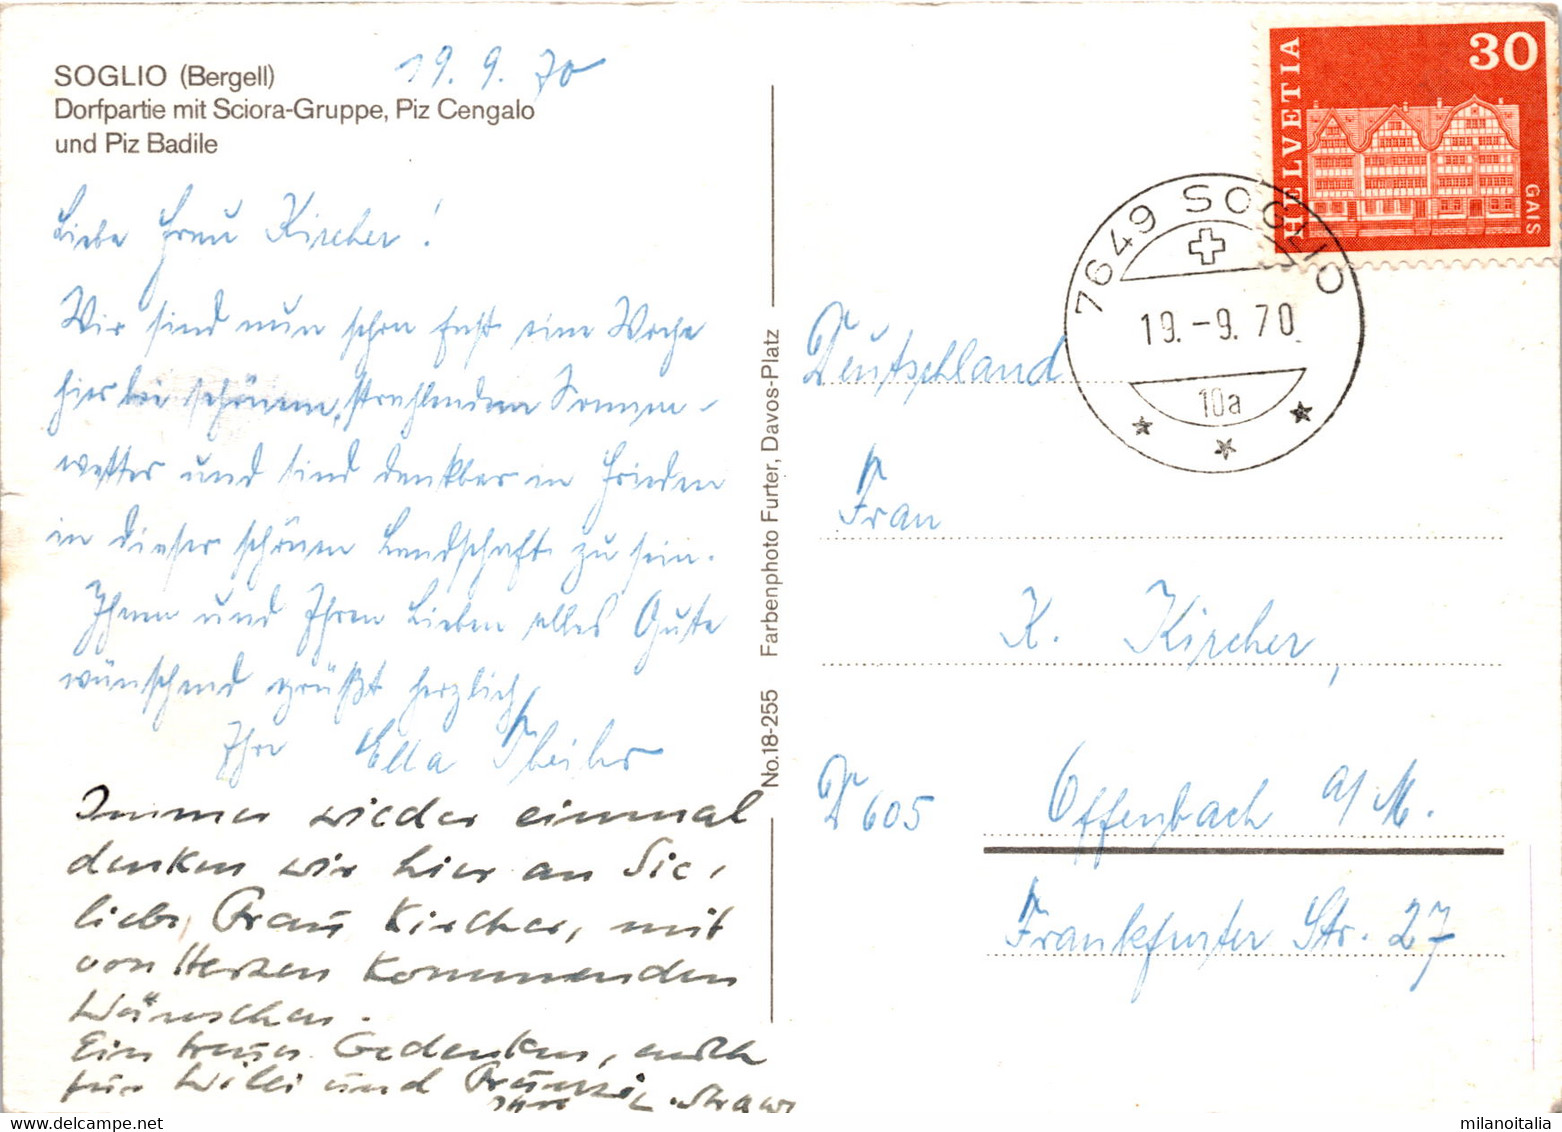 SOGLIO (Bergell)
Dorfpartie mit Sciora-Gruppe, Piz Cengalo
und Piz Badile
19. 9. 70
Liebe Frau Kircher!
Wir sind nun schon fast eine Woche
hier bei schönem, strahlendem Sonnen-
wetter und sind dankbar in Frieden
in dieser schönen Landschaft zu sein.
Ihnen und Ihren Lieben alles Gute
wünschend grüßt herzlich
Ihre Ella Theiler
Immer wieder einmal
denken wir hier an Sie,
liebe Frau Kircher, mit
von Herzen kommenden
Wünschen.
Ein treues Gedenken, auch
für Willi und
Ihre
No. 18-255 Farbenphoto Furter, Davos-Platz
HELVETIA
30
GAIS
7649 SOGLIO
19.-9.70
10a
Deutschland
Frau
K. Kircher,
D 605 Offenbach a/M.
Frankfurter Str. 27
milanoitalia